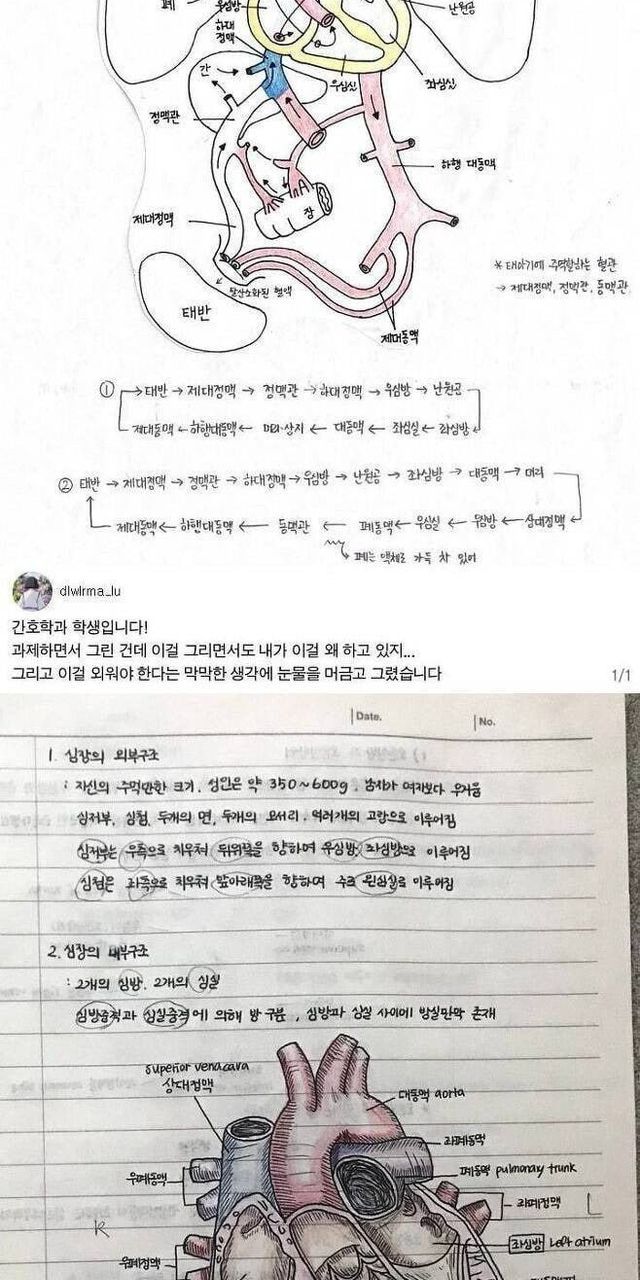 폐
우심방
난원공
하대
정맥
간
우심실
좌심실
정맥관
하행 대동맥
제대정맥
장
* 태아기에 주역할하는 혈관
→ 제대정맥, 정맥관, 동맥관
탈산소화된 혈액
태반
제대동맥
① → 태반 → 제대정맥 → 정맥관 → 하대정맥 → 우심방 → 난원공
제대동맥 ← 하행대동맥 ← 머리·상지 ← 대동맥 ← 좌심실 ← 좌심방
② 태반 → 제대정맥 → 정맥관 → 하대정맥 → 우심방 → 난원공 → 좌심방 → 대동맥 → 머리
제대동맥 ← 하행대동맥 ← 동맥관 ← 폐동맥 ← 우심실 ← 우심방 ← 상대정맥
↳ 폐는 액체로 가득 차 있어
dlwlrma_lu
간호학과 학생입니다!
과제하면서 그린 건데 이걸 그리면서도 내가 이걸 왜 하고 있지...
그리고 이걸 외워야 한다는 막막한 생각에 눈물을 머금고 그렸습니다
1/1
Date.
No.
1. 심장의 외부구조
: 자신의 주먹만한 크기. 성인은 약 350~600g. 남자가 여자보다 무거움
심저부, 심첨, 두개의 면, 두개의 모서리, 여러개의 고랑으로 이루어짐
심저부는 우측으로 치우쳐 뒤위쪽을 향하며 우심방, 좌심방으로 이루어짐
심첨은 좌측으로 치우쳐 앞아래쪽을 향하며 수로 왼심실로 이루어짐
2. 심장의 내부구조
: 2개의 심방. 2개의 심실
심방중격과 심실중격에 의해 방 구분, 심방과 심실 사이에 방실판막 존재
superior venacava
상대정맥
대동맥 aorta
좌폐동맥
우폐동맥
폐동맥 pulmonary trunk
좌폐정맥
L
R
좌심방 Left atrium
우폐정맥